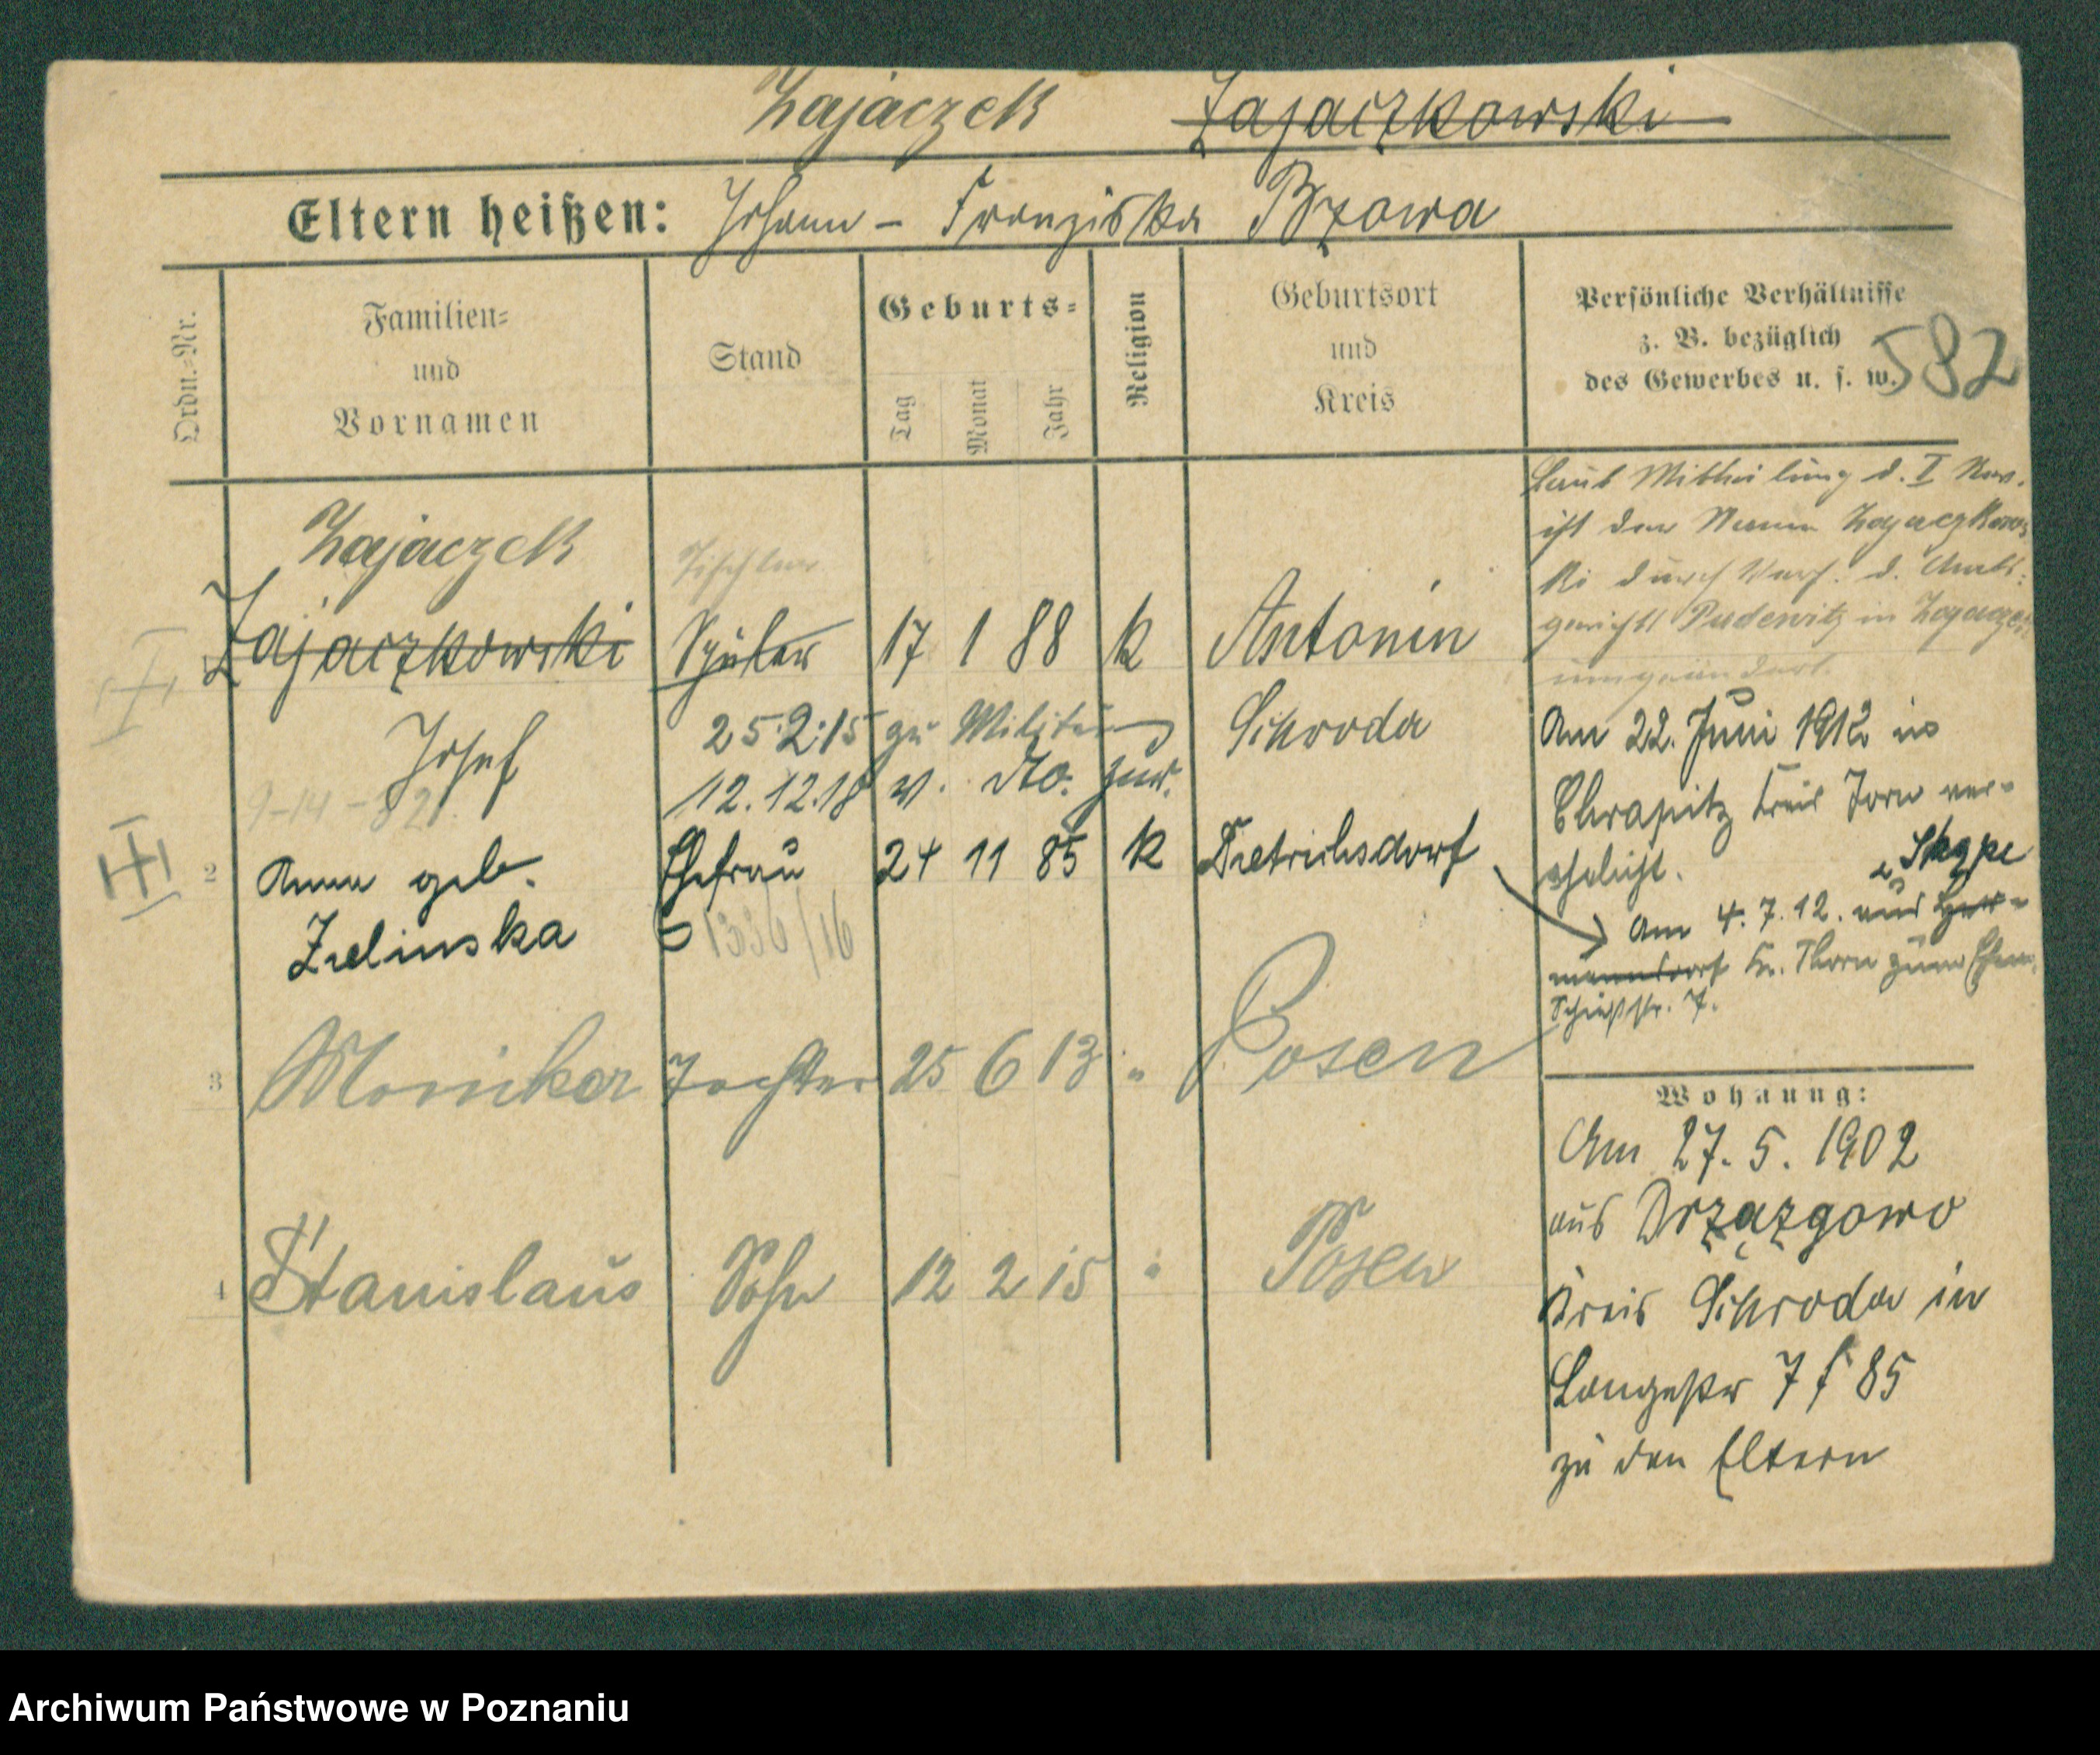 Zajączek Zajaczkowski
Eltern heißen: Johann – Franziska Bzowa
Ordn.-Nr.
Familien-
und
Vornamen
Stand
Geburts-
Tag Monat Jahr
Religion
Geburtsort
und
Kreis
Persönliche Verhältnisse
z. B. bezüglich
des Gewerbes u. s. w.
582
Zajączek
Tischler
Zajaczkowski Schüler 17 1 88 k Antonin
Josef
25.2.15 zu Militär
12.12.18 v. do. zur.
Schroda
9-14-82
2 Anna geb. Ehefrau 24 11 85 k Dietrichsdorf
Zielinska
1336/16
3 Monika Tochter 25 6 13 " Posen
4 Stanislaus Sohn 12 2 15 " Posen
Laut Mittheilung d. I Rev.
ist der Name Zajaczkows
ki durch Verf. d. Amts-
gerichts Pudewitz in Zajączek
umgeändert.
Am 22. Juni 1912 in
Chrapitz Kreis Torn ver-
ehelicht.
Skąpe
Am 4.7.12. aus Her-
mannsdorf Kr. Thorn zum Ehem.
Schießstr. 7.
Wohnung:
Am 27. 5. 1902
aus Drzązgowo
Kreis Schroda in
Langestr 7 f 85
zu den Eltern
Archiwum Państwowe w Poznaniu